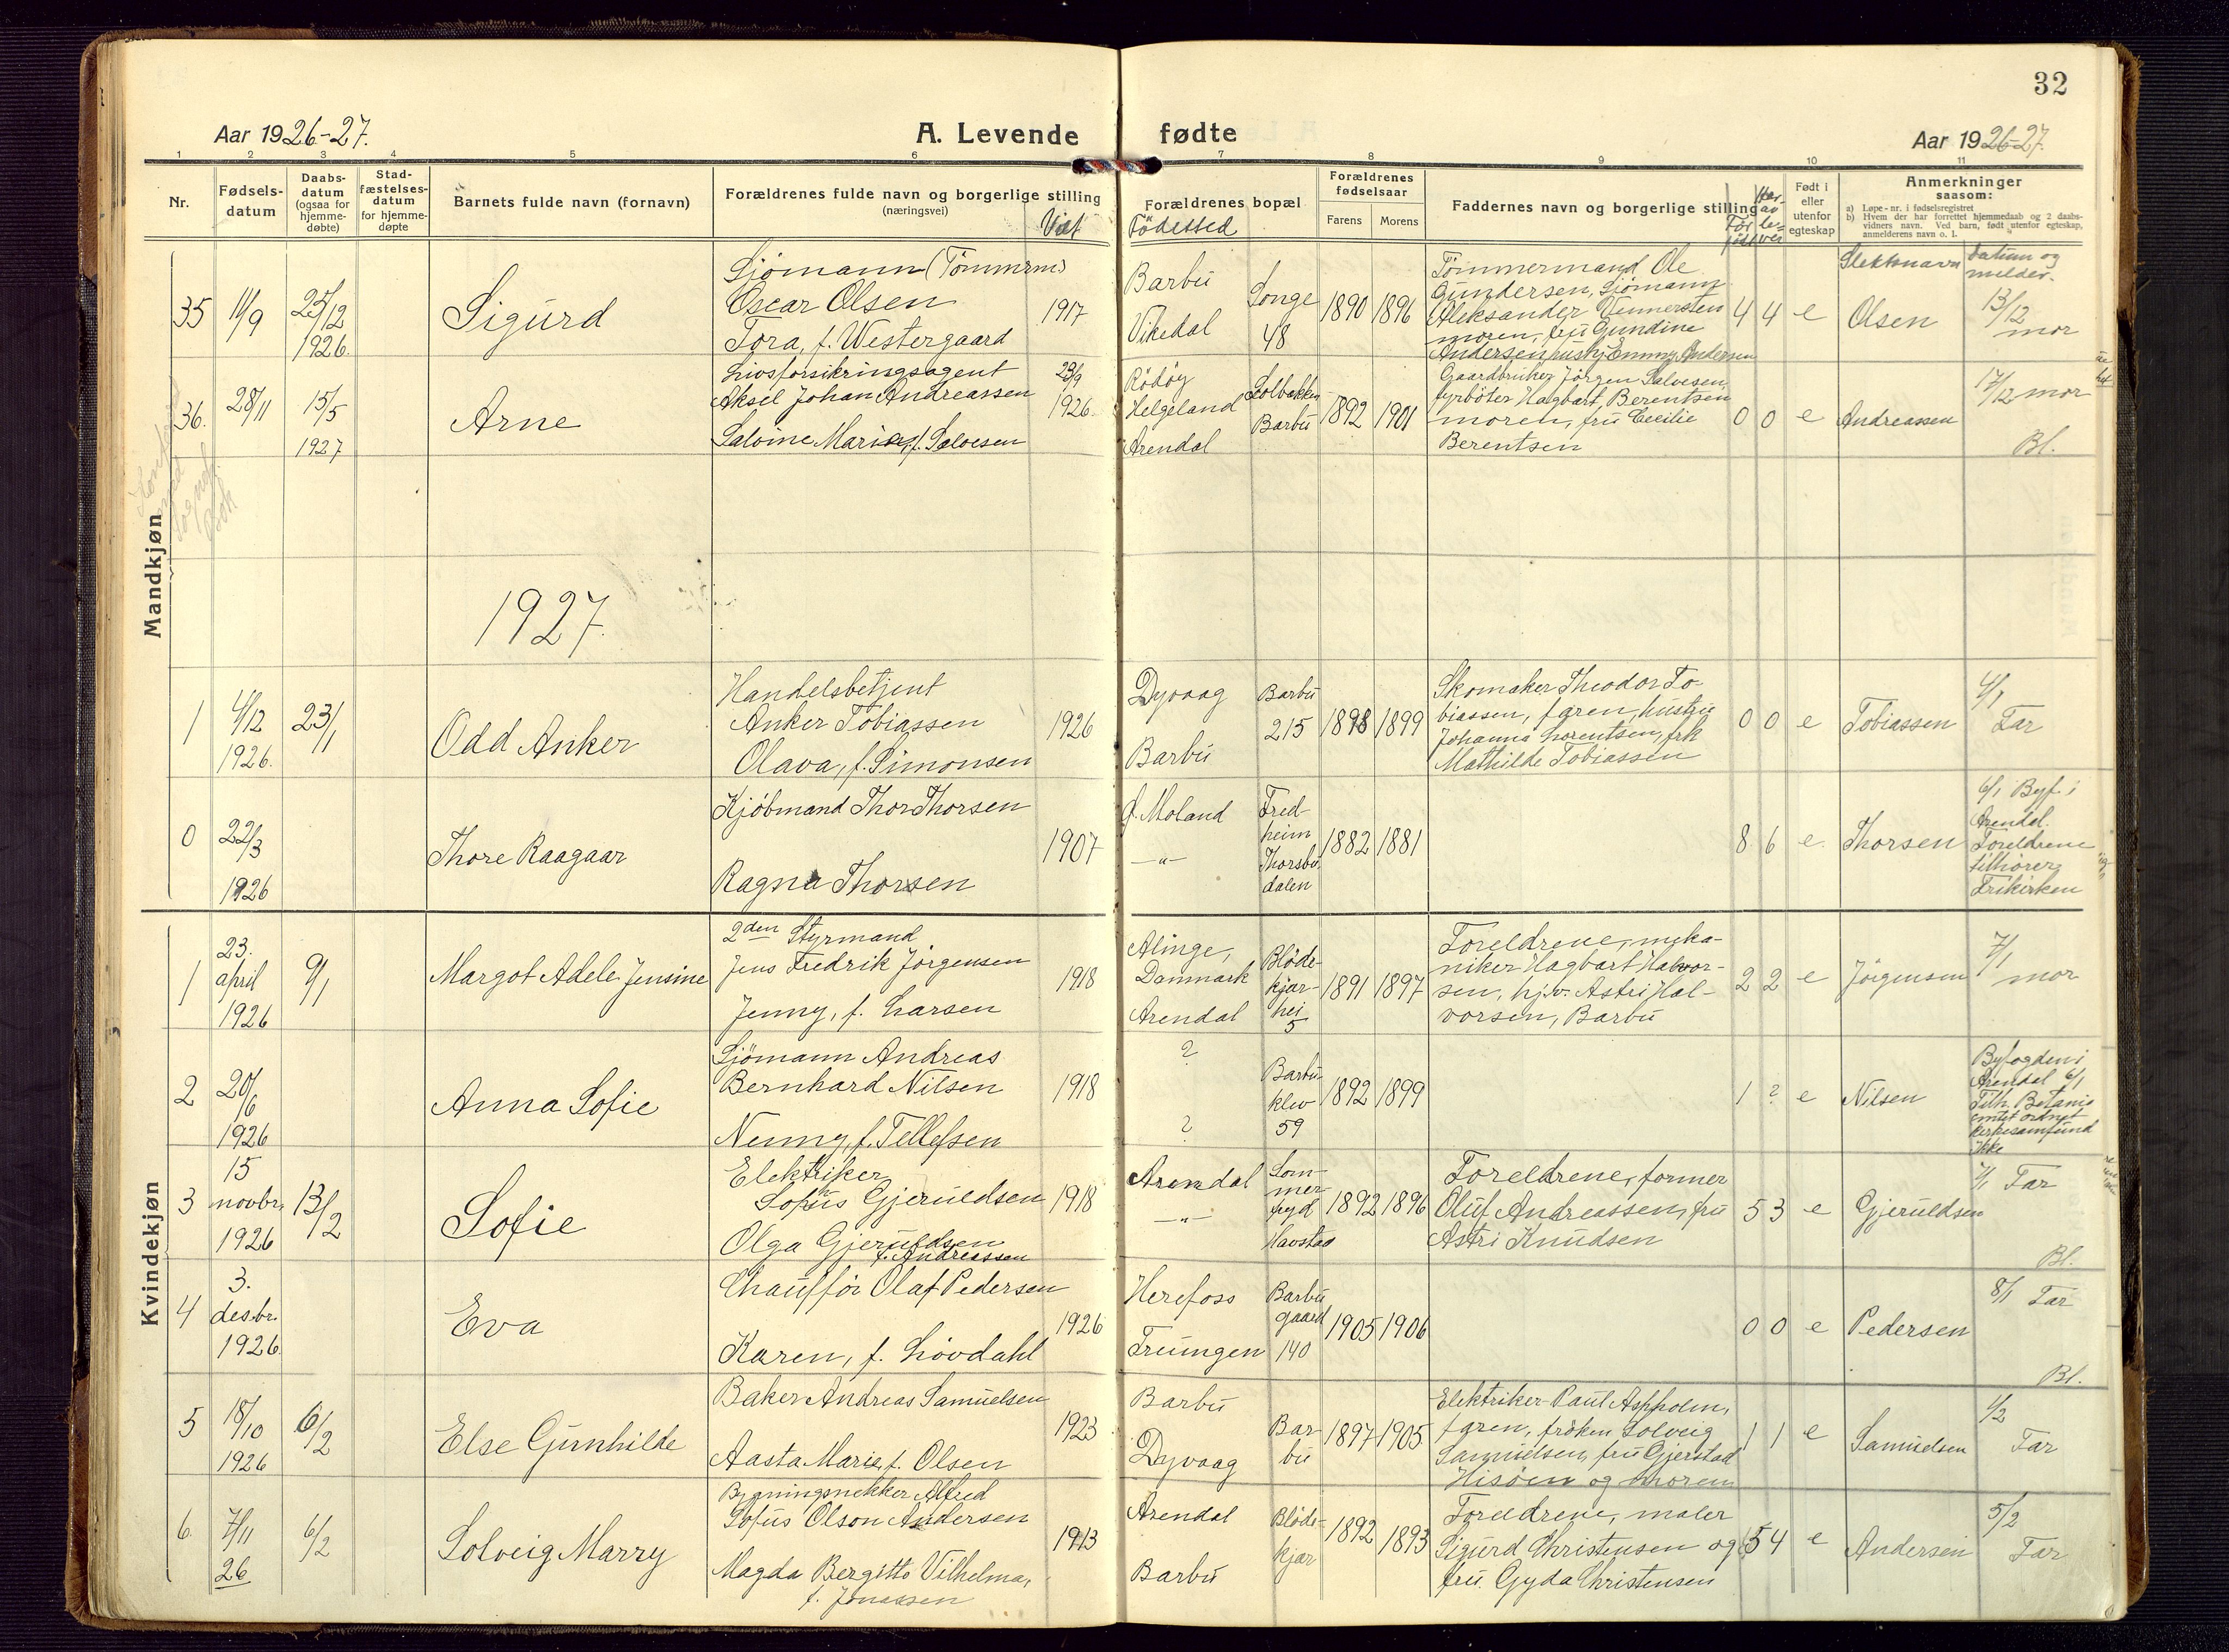 32
Aar 1926-27.
A. Levende fødte
Aar 1926-27.
1 2 3 4 5 6 7 8 9 10 11
Nr.
Fødsels-
datum
Daabs-
datum
(ogsaa for
hjemme-
døbte)
Stad-
fæstelses-
datum
for hjemme-
døpte
Barnets fulde navn (fornavn)
Forældrenes fulde navn og borgerlige stilling
(næringsvei)
Viet
Forældrenes bopæl
Födested
Forældrenes
fødselsaar
Farens
Morens
Faddernes navn og borgerlige stilling
Født i
eller
utenfor
egteskap
Anmerkninger
saasom:
a) Løpe-nr. i fødselsregistret
b) Hvem der har forrettet hjemmedaab og 2 daabs-
vidners navn. Ved barn, født utenfor egteskap,
anmelderens navn o. l.
Slektsnavn
datum og
melder.
Mandkjøn
35
11/9
25/12
1926.
Sigurd
Sjömann (Tömmerm)
Oscar Olsen
Tora, f. Westergaard
1917
Barbu
Vikedal
Songe
48
1890
1896
Tömmermand Ole
Gundersen, Sjömann
Aleksander Vennersten
moren, fru Gundine
Andersen, huskj Emmy Andersen
4 4 e
Olsen
13/12
mor
36.
28/11
15/5
1927
Arne
Livsforsikringsagent
Aksel Johan Andreassen
Salvine Marie, f. Salvesen
23/9
1926.
Rödöy
Helgeland
Arendal
Solbakken
Barbu
1892
1901
Gaardbruker Jörgen Salvesen,
fyrböter Hagbart Berentsen
moren, fru Cecilie
Berentsen
0 0 e
Andreassen
17/12 mor
Bl.
1927.
1
4/12
1926.
23/1
Odd Anker
Handelsbetjent
Anker Tobiassen
Olava, f. Simonsen
1926
Dyvaag
Barbu
Barbu
215
1898
1899
Skomaker Theodor To-
biassen, faren, hustru
Johanna Lorentsen, frk
Mathilde Tobiassen
0 0 e
Tobiassen
4/1
Far
0
22/3
1926
Thore Raagaar
Kjöbmand Thor Thorsen
Ragna Thorsen
1907
Ö. Moland
—"—
Fred-
heim
Thorsbu
dalen
1882
1881
8 6 e.
Thorsen
6/1 Byf. i
Arendal.
Foreldrene
tilhører
Frikirken
Kvindekjøn
1
23.
april
1926
9/1
Margot Adele Jensine
2den Styrmand
Jens Fredrik Jörgensen
Jenny, f. Larsen
1918
Alinge,
Danmark
Arendal
Blöde-
kjær-
hei
5
1891
1897
Foreldrene, meka-
niker Hagbart Halvor-
sen, hjv. Astri Hal-
vorsen, Barbu
2 2 e
Jörgensen
7/1
mor
2
20/6
1926
Anna Sofie
Sjömann Andreas
Bernhard Nilsen
Nenny, f. Tellefsen
1918
?
?
Barbu-
klev
59
1892
1899
1 ? e
Nilsen
Byfogden i
Arendal 6/1
Tilh. Betania
ordnet
kirkesamfund
ikke
3
15
novbr.
1926
13/2
Sofie
Elektriker
Sofus Gjeruldsen
Olga Gjeruldsen
f. Andreassen
1918
Arendal
—"—
Som-
mer-
fryd
Havstad
1892
1896
Foreldrene, former
Oluf Andreassen, fru
Astri Knudsen
5 3 e
Gjeruldsen
7/1 Far
Bl.
4
3.
desbr.
1926.
Eva
Chauffør Olaf Pedersen
Karen, f. Lövdahl
1926
Herefoss
Barbu
gaard
140
1905
1906
0 0 e
Pedersen
8/1 Far
Bl.
5
18/10
1926
6/2
Else Gunhilde
Baker Andreas Samuelsen
Aasta Marie, f. Olsen
1923
Barbu
Dyvaag
Bar-
bu
1897
1905
Elektriker Paul Aspholm,
faren, fröken Solveig
Samuelsen, fru Gjerstad
Hisöen og moren
1 1 e
Samuelsen
1/2
Far
6.
7/11
26
6/2
Solveig Marry
Bygningsnekker Alfred
Sofus Olson Andersen
Magda Bergitte Vilhelma,
f. Jonassen
1913
Arendal
Barbu
Blöde-
kjær
1892
1893
Foreldrene, maler
Sigurd Christensen og
fru Gyda Christensen
5 4 e
Andersen
5/2
Far